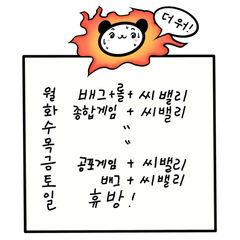 더워!
월 배그+롤+ 씨밸리
화 종합게임 + 씨밸리
수 〃 〃
목
금 공포게임 + 씨밸리
토 배그 + 씨밸리
일 휴방!